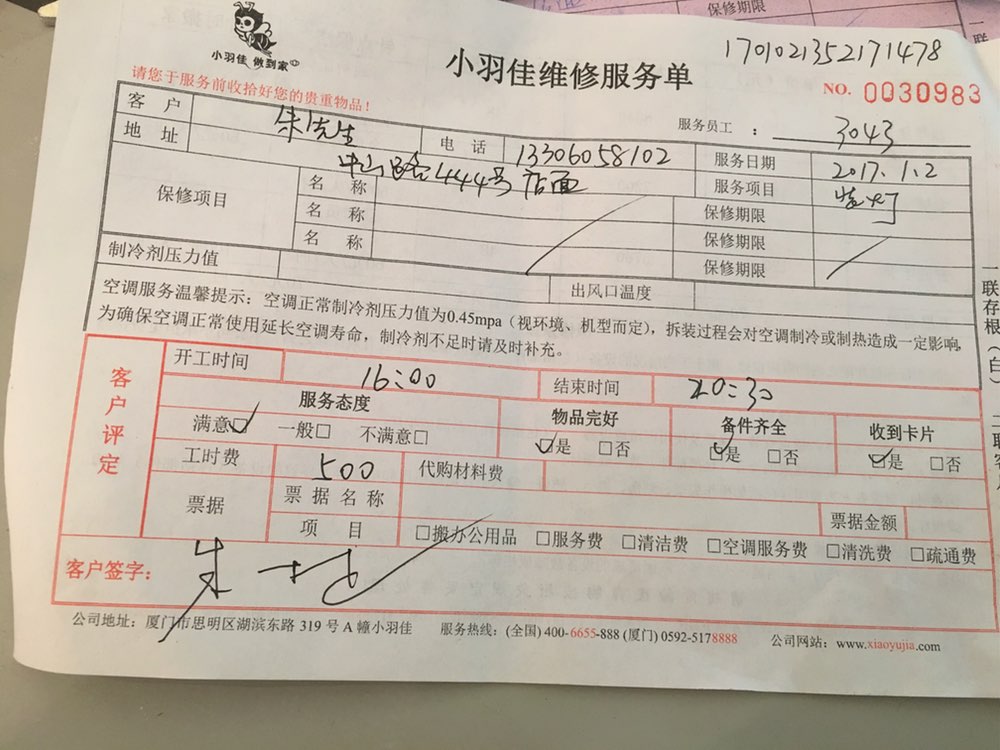 保修期限
小羽佳 做到家
小羽佳维修服务单
1701021352171478
请您于服务前收拾好您的贵重物品！
NO. 0030983
服务员工 ： 3043
客户 朱先生 电话 13306058102 服务日期 2017.1.2
地址 中山路444号店面 服务项目 装灯
保修项目 名称 保修期限
名称 保修期限
名称 保修期限
制冷剂压力值 出风口温度
空调服务温馨提示：空调正常制冷剂压力值为0.45mpa（视环境、机型而定），拆装过程会对空调制冷或制热造成一定影响，
为确保空调正常使用延长空调寿命，制冷剂不足时请及时补充。
客户评定
开工时间 16:00 结束时间 20:30
服务态度 物品完好 备件齐全 收到卡片
满意☑ 一般□ 不满意□ ☑是 □否 ☑是 □否 ☑是 □否
工时费 500 代购材料费
票据 票据名称 票据金额
项目 □搬办公用品 □服务费 □清洁费 □空调服务费 □清洗费 □疏通费
客户签字： 朱
公司地址：厦门市思明区湖滨东路 319 号 A 幢小羽佳 服务热线：(全国) 400-6655-888 (厦门) 0592-5178888 公司网站：www.xiaoyujia.com
一联存根（白）